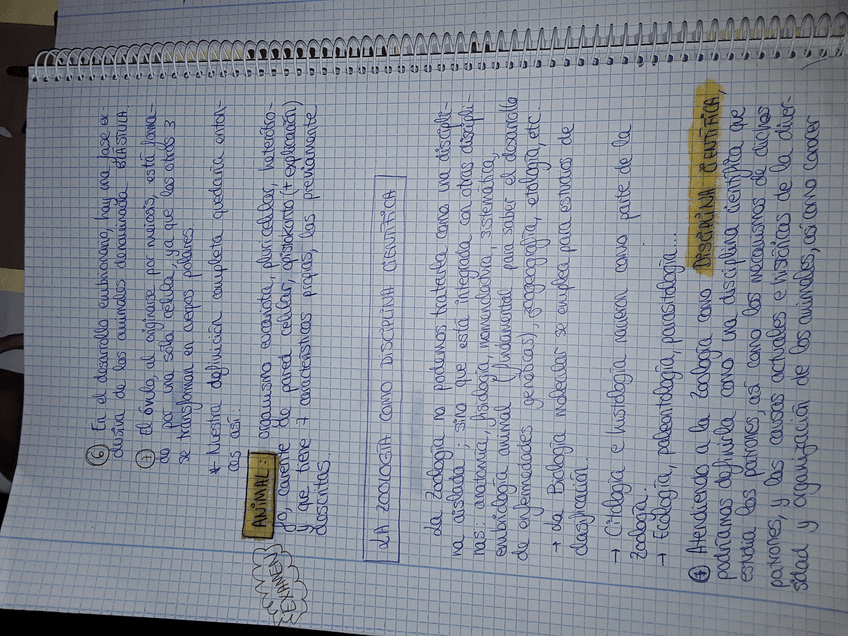 ⑥ En el desarrollo embrionario, hay una fase ex-
clusiva de los animales denominada BLÁSTULA.
⑦ El óvulo, al originarse por meiosis, está forma-
do por una sola célula, ya que las otras 3
se transforman en cuerpos polares
* Nuestra definición completa quedaría enton-
ces así:
EXAMEN
ANIMAL: organismo eucariota, pluricelular, heterótro-
fo, carente de pared celular, opistokonto (+ explicación)
y que tiene 7 características propias, las previamente
descritas.
LA ZOOLOGÍA COMO DISCIPLINA CIENTÍFICA
La Zoología no podemos tratarla como una discipli-
na aislada; sino que está integrada con otras discipli-
nas: anatomía, fisiología, nomenclatura, sistemática,
embriología animal (fundamental para saber el desarrollo
de enfermedades genéticas), zoogeografía, etología, etc.
→ La Biología molecular se emplea para estudios de
clasificación
→ Citología e histología nacieron como parte de la
Zoología.
→ Ecología, paleontología, parasitología...
Atendiendo a la Zoología como DISCIPLINA CIENTÍFICA,
podríamos definirla como una disciplina científica que
estudia los patrones, así como los mecanismos de dichos
patrones, y las causas actuales e históricas de la diver-
sidad y organización de los animales, así como conocer